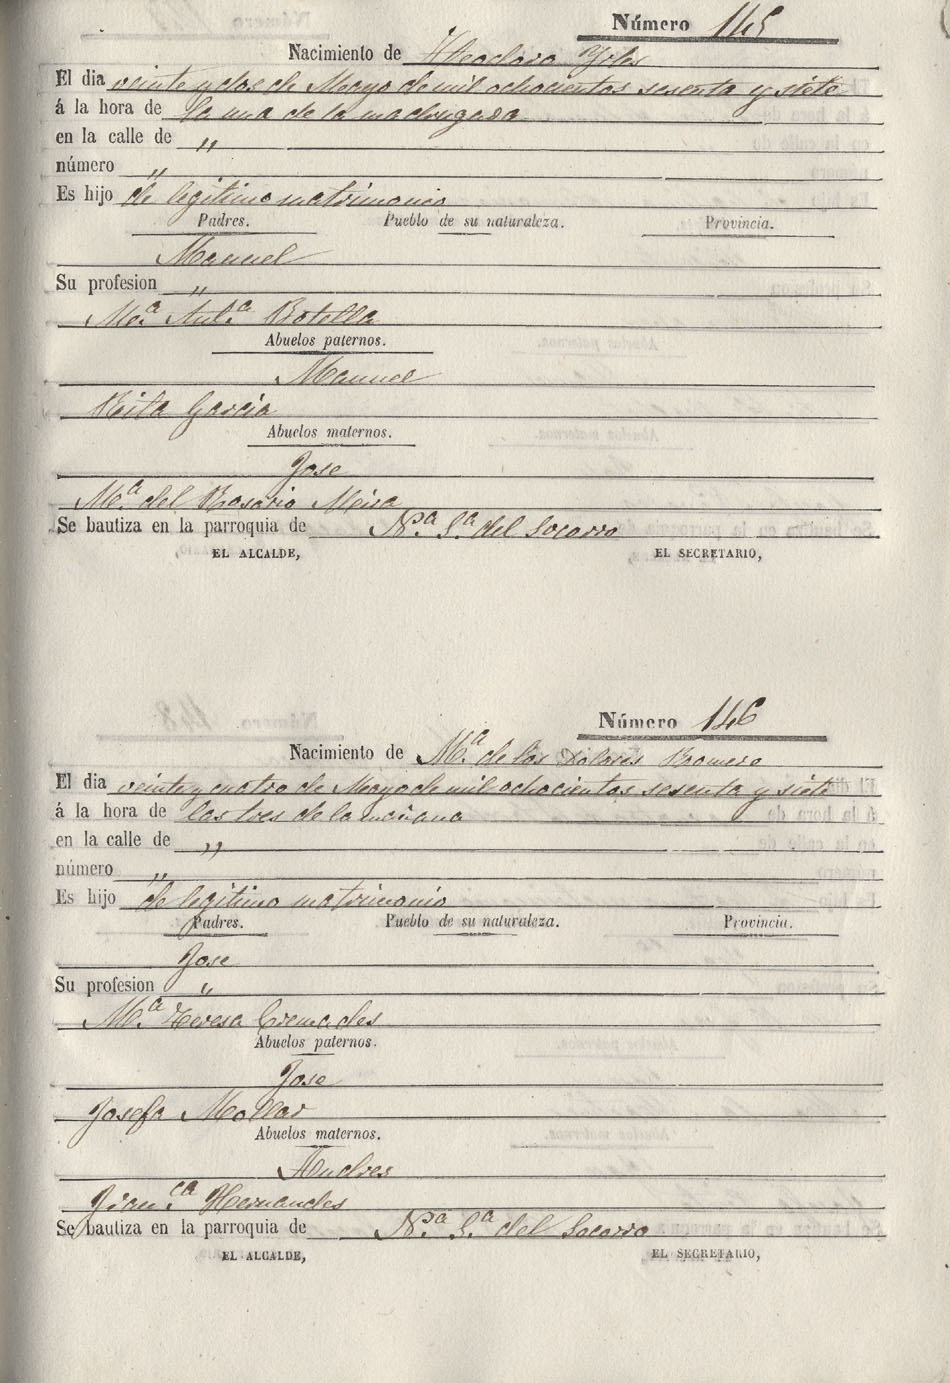 Número 145
Nacimiento de Theodoro Yrles
El dia veinte y dos de Mayo de mil ochocientos sesenta y siete
á la hora de la una de la madrugada
en la calle de "
número "
Es hijo de legitimo matrimonio
Padres. Pueblo de su naturaleza. Provincia.
Manuel
Su profesion "
Mª. Antª. Botella
Abuelos paternos.
Manuel
Rita Garcia
Abuelos maternos.
Jose
Mª. del Rosario Meira
Se bautiza en la parroquia de Nª. Sª. del Socorro
EL ALCALDE, EL SECRETARIO,
Número 146
Nacimiento de Mª. de los Dolores Romero
El dia veinte y cuatro de Mayo de mil ochocientos sesenta y siete
á la hora de las tres de la mañana
en la calle de "
número "
Es hijo de legitimo matrimonio
Padres. Pueblo de su naturaleza. Provincia.
Jose
Su profesion "
Mª. Teresa Cremades
Abuelos paternos.
Jose
Josefa Mollar
Abuelos maternos.
Andres
Francᵃ. Hernandes
Se bautiza en la parroquia de Nª. Sª. del Socorro
EL ALCALDE, EL SECRETARIO,